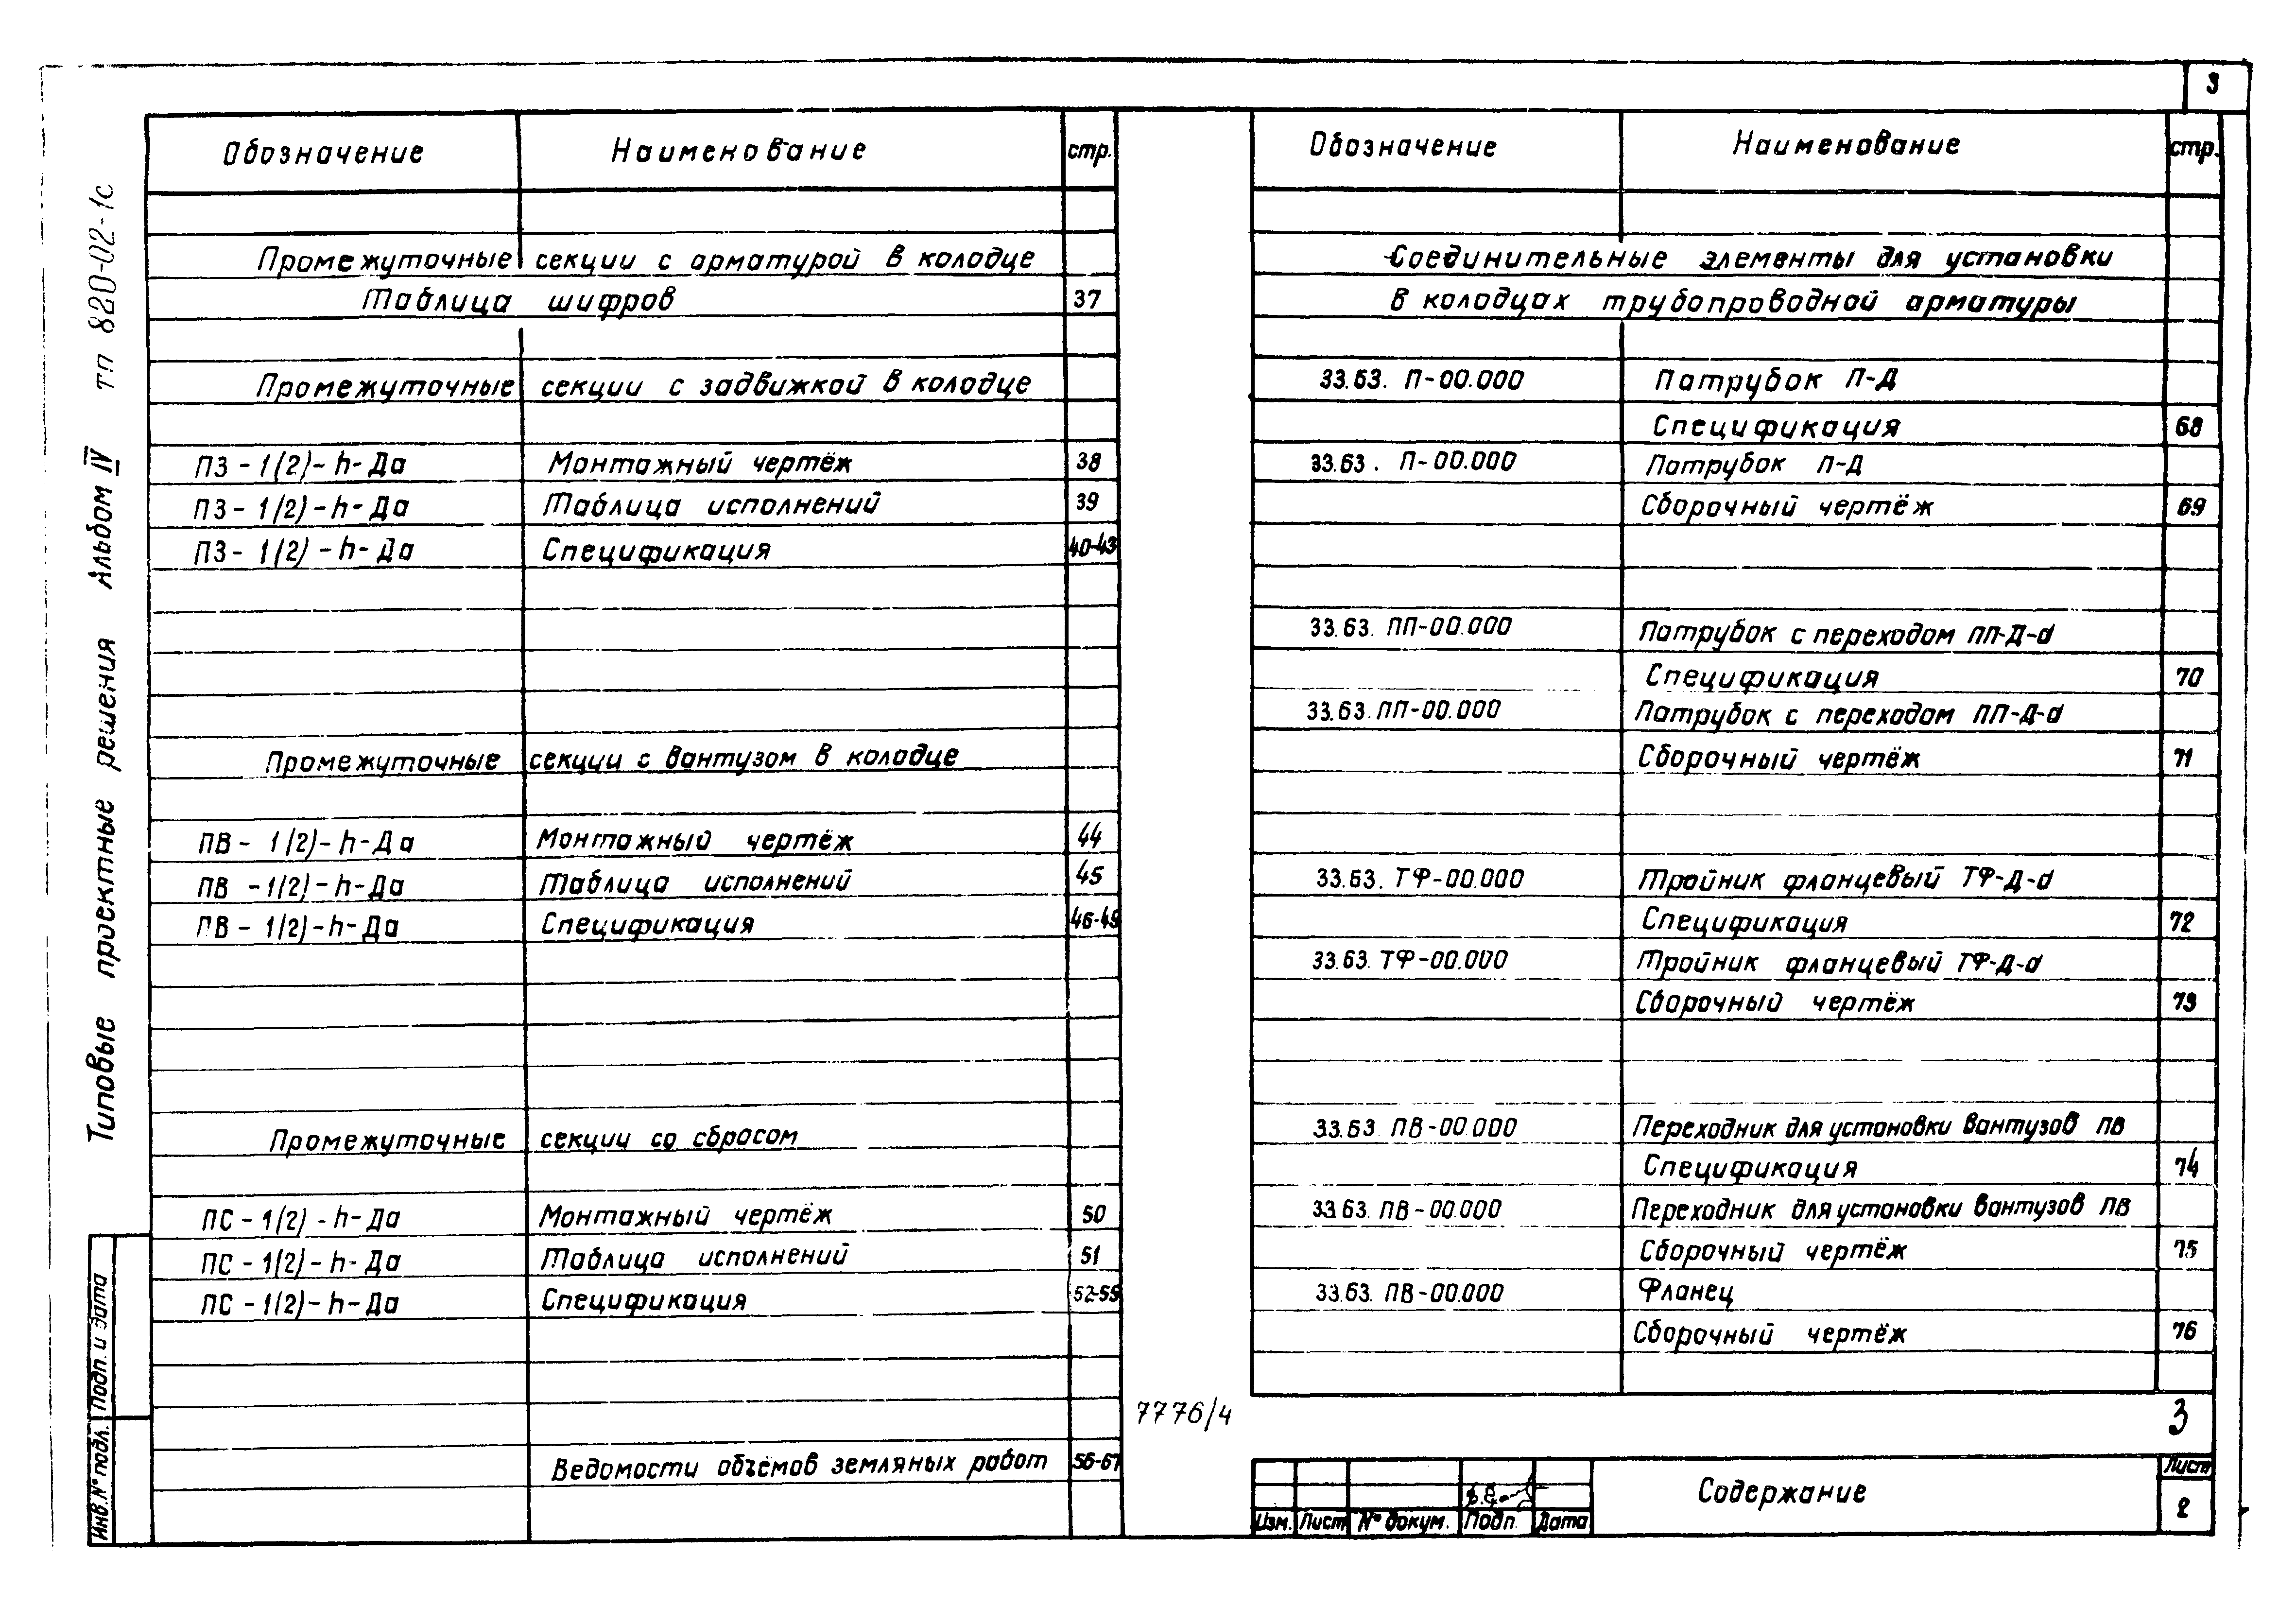 3
Обозначение Наименование стр.
Промежуточные секции с арматурой в колодце
Таблица шифров 37
Промежуточные секции с задвижкой в колодце
ПЗ-1(2)-h-Да Монтажный чертёж 38
ПЗ-1(2)-h-Да Таблица исполнений 39
ПЗ-1(2)-h-Да Спецификация 40-43
Промежуточные секции с вантузом в колодце
ПВ-1(2)-h-Да Монтажный чертёж 44
ПВ-1(2)-h-Да Таблица исполнений 45
ПВ-1(2)-h-Да Спецификация 46-49
Промежуточные секции со сбросом
ПС-1(2)-h-Да Монтажный чертёж 50
ПС-1(2)-h-Да Таблица исполнений 51
ПС-1(2)-h-Да Спецификация 52-55
Ведомости объёмов земляных работ 56-67
Обозначение Наименование стр.
Соединительные элементы для установки
в колодцах трубопроводной арматуры
33.63. П-00.000 Патрубок П-Д
Спецификация 68
33.63. П-00.000 Патрубок П-Д
Сборочный чертёж 69
33.63. ПП-00.000 Патрубок с переходом ПП-Д-d
Спецификация 70
33.63. ПП-00.000 Патрубок с переходом ПП-Д-d
Сборочный чертёж 71
33.63. ТФ-00.000 Тройник фланцевый ТФ-Д-d
Спецификация 72
33.63. ТФ-00.000 Тройник фланцевый ТФ-Д-d
Сборочный чертёж 73
33.63 ПВ-00.000 Переходник для установки вантузов ПВ
Спецификация 74
33.63. ПВ-00.000 Переходник для установки вантузов ПВ
Сборочный чертёж 75
33.63. ПВ-00.000 Фланец
Сборочный чертёж 76
7776/4
3
Изм. Лист № докум. Подп. Дата
Содержание
Лист
2
Типовые проектные решения Альбом IV тп 820-02-1с
Инв. № подл. Подп. и дата